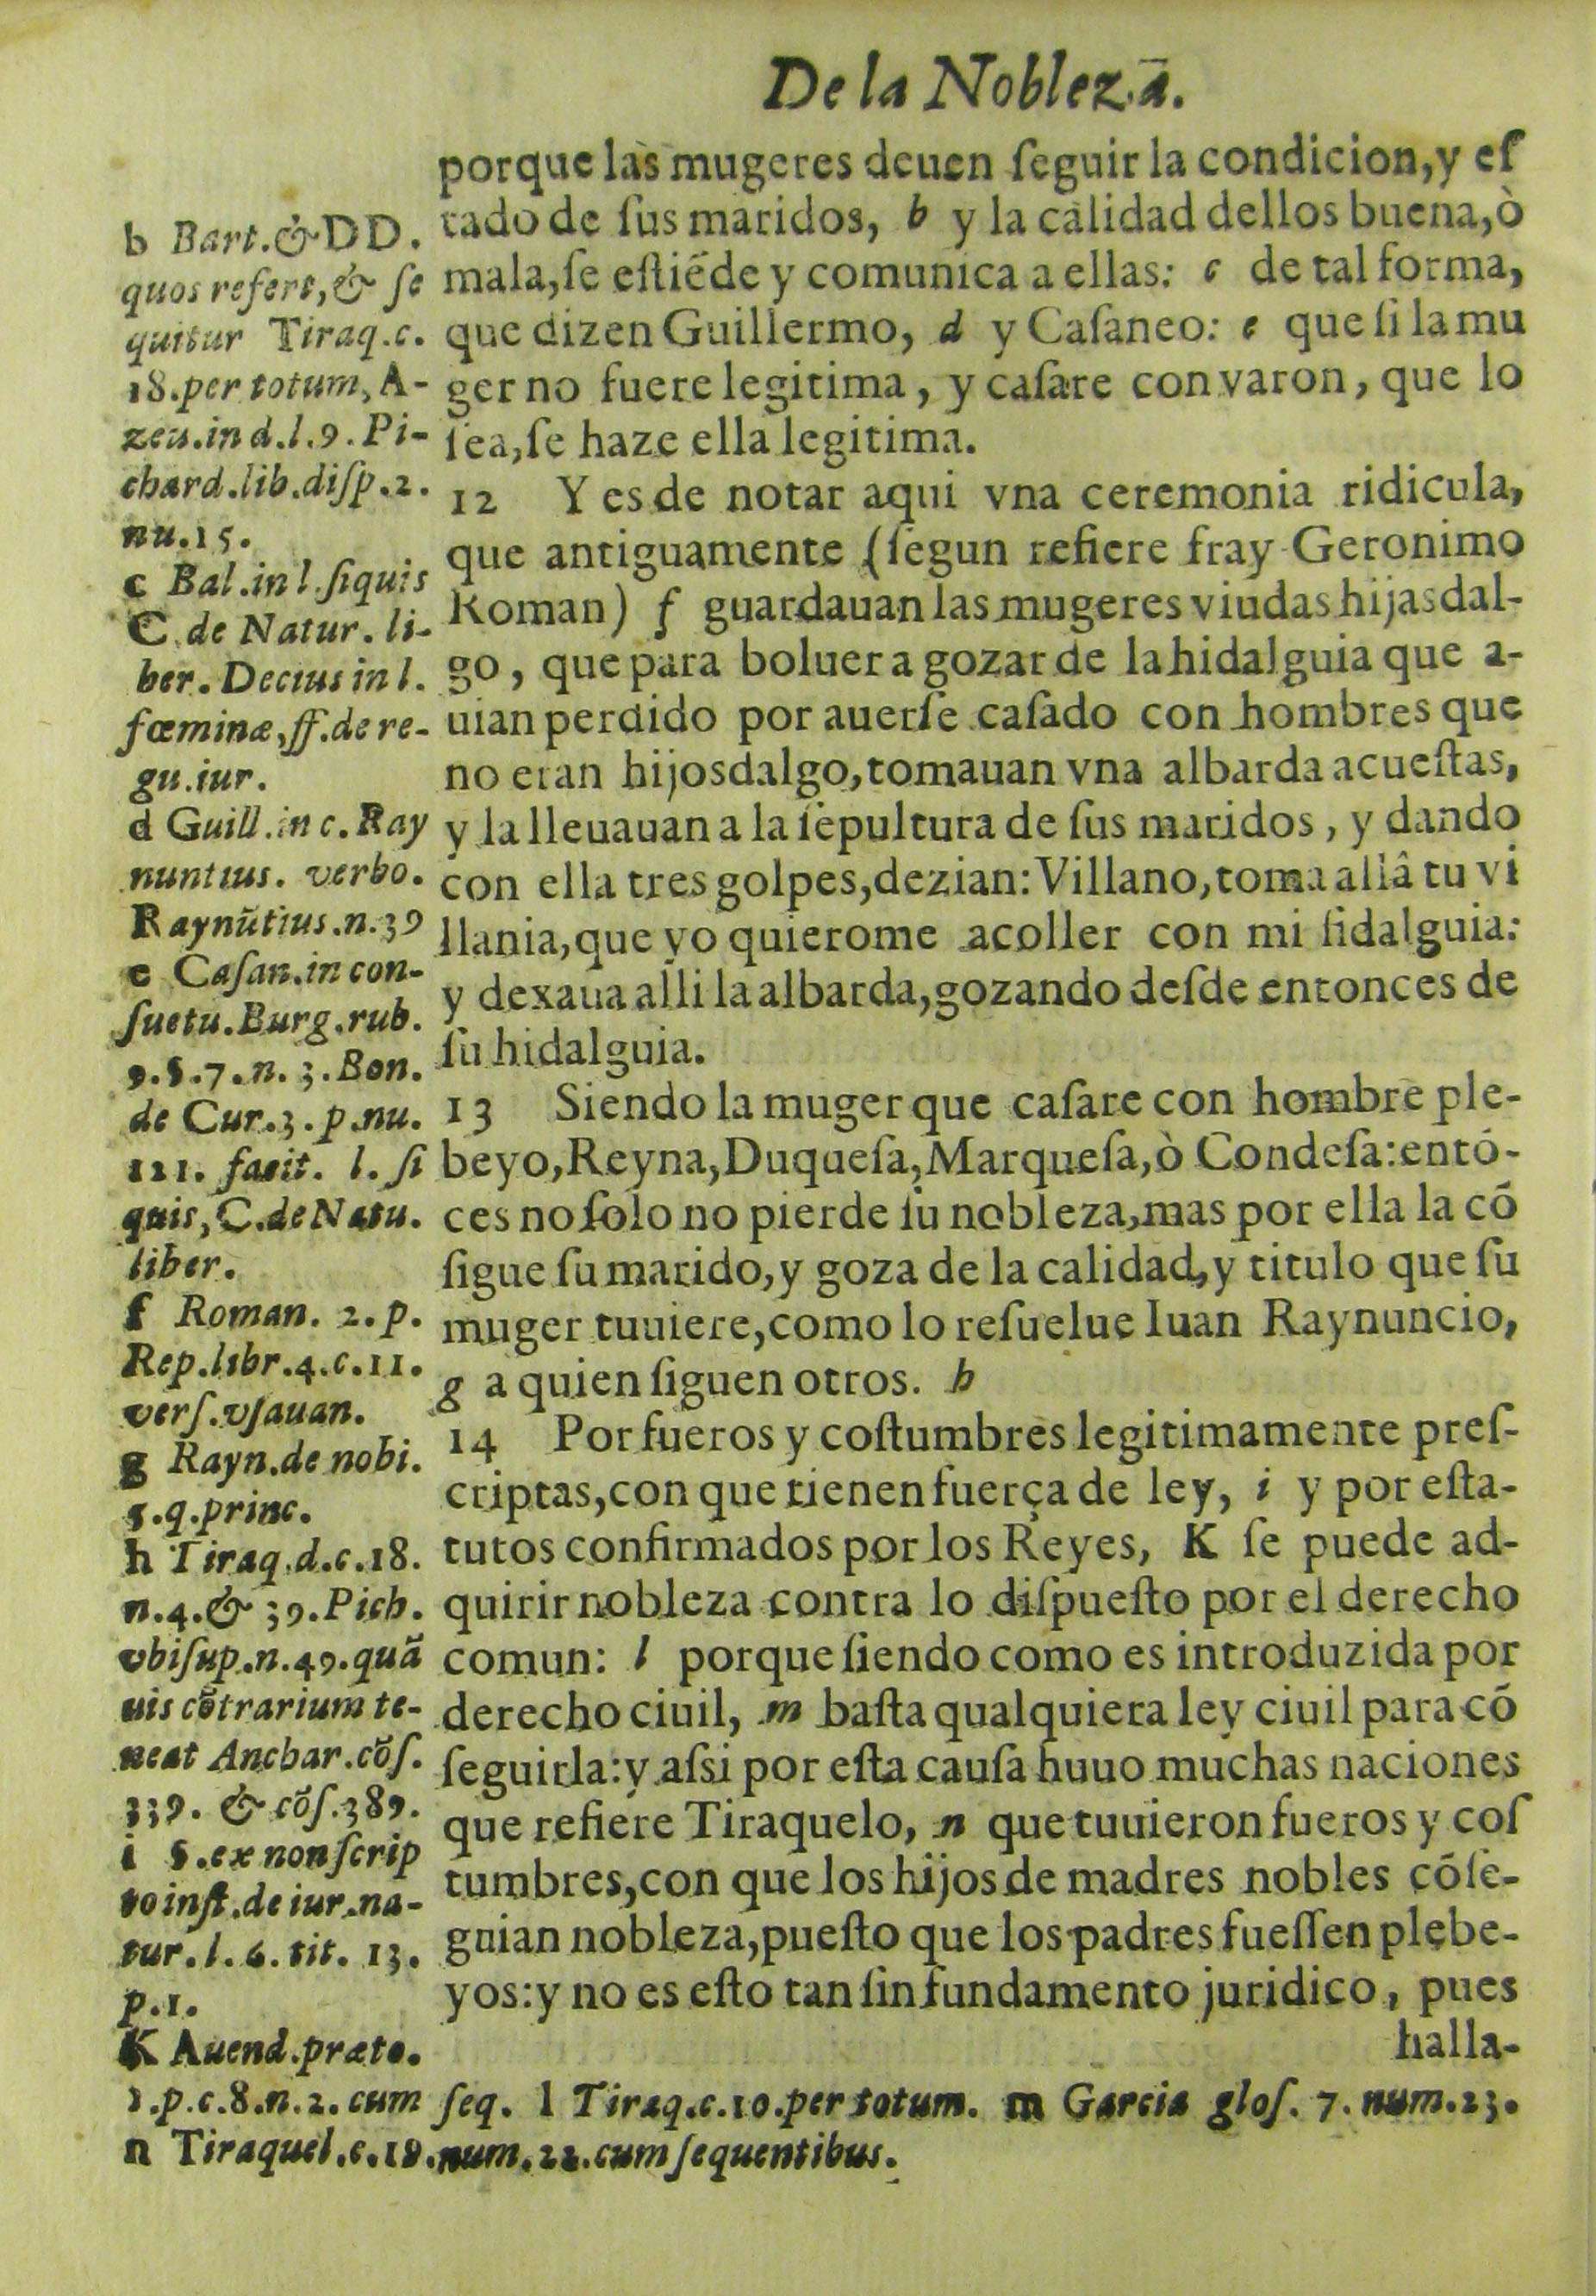 De la Nobleza.
porque las mugeres deuen ſeguir la condicion, y eſ
tado de ſus maridos, b y la calidad dellos buena, ò
mala, ſe eſtiẽde y comunica a ellas: c de tal forma,
que dizen Guillermo, d y Caſaneo: e que ſi la mu
ger no fuere legitima, y caſare con varon, que lo
ſea, ſe haze ella legitima.
12 Y es de notar aqui vna ceremonia ridicula,
que antiguamente (ſegun refiere fray Geronimo
Roman) f guardauan las mugeres viudas hijasdal-
go, que para boluer a gozar de la hidalguia que a-
uian perdido por auerſe caſado con hombres que
no eran hijosdalgo, tomauan vna albarda acueſtas,
y la lleuauan a la ſepultura de ſus maridos, y dando
con ella tres golpes, dezian: Villano, toma allâ tu vi
llania, que yo quierome acoller con mi fidalguia:
y dexaua alli la albarda, gozando deſde entonces de
ſu hidalguia.
13 Siendo la muger que caſare con hombre ple-
beyo, Reyna, Duqueſa, Marqueſa, ò Condeſa: entõ-
ces no ſolo no pierde ſu nobleza, mas por ella la cõ
ſigue ſu marido, y goza de la calidad, y titulo que ſu
muger tuuiere, como lo reſuelue Iuan Raynuncio,
g a quien ſiguen otros. h
14 Por fueros y coſtumbres legitimamente preſ-
criptas, con que tienen fuerça de ley, i y por eſta-
tutos confirmados por los Reyes, K ſe puede ad-
quirir nobleza contra lo diſpueſto por el derecho
comun: l porque ſiendo como es introduzida por
derecho ciuil, m baſta qualquiera ley ciuil para cõ
ſeguirla: y aſsi por eſta cauſa huuo muchas naciones
que refiere Tiraquelo, n que tuuieron fueros y coſ
tumbres, con que los hijos de madres nobles cõſe-
guian nobleza, pueſto que los padres fueſſen plebe-
yos: y no es eſto tan ſin fundamento juridico, pues
halla-
b Bart. & DD.
quos refert, & ſe
quitur Tiraq. c.
18. per totum, A-
zeu. in d. l. 9. Pi-
chard. lib. diſp. 2.
nu. 15.
c Bal. in l. ſiquis
C. de Natur. li-
ber. Decius in l.
fœminæ, ff. de re-
gu. iur.
d Guill. in c. Ray
nuntius. verbo.
Raynũtius. n. 39
e Caſan. in con-
ſuetu. Burg. rub.
9. §. 7. n. 3. Bon.
de Cur. 3. p. nu.
121. facit. l. ſi
quis, C. de Natu.
liber.
f Roman. 2. p.
Rep. libr. 4. c. 11.
verſ. vſauan.
g Rayn. de nobi.
5. q. princ.
h Tiraq. d. c. 18.
n. 4. & 39. Pich.
vbiſup. n. 49. quã
uis cõtrarium te-
neat Anchar. cõſ.
339. & cõſ. 389.
i §. ex non ſcrip
to inſt. de iur. na-
tur. l. 6. tit. 13.
p. 1.
K Auend. præto.
1. p. c. 8. n. 2. cum ſeq. l Tiraq. c. 10. per totum. m Garcia gloſ. 7. num. 23.
n Tiraquel. c. 18. num. 22. cum ſequentibus.